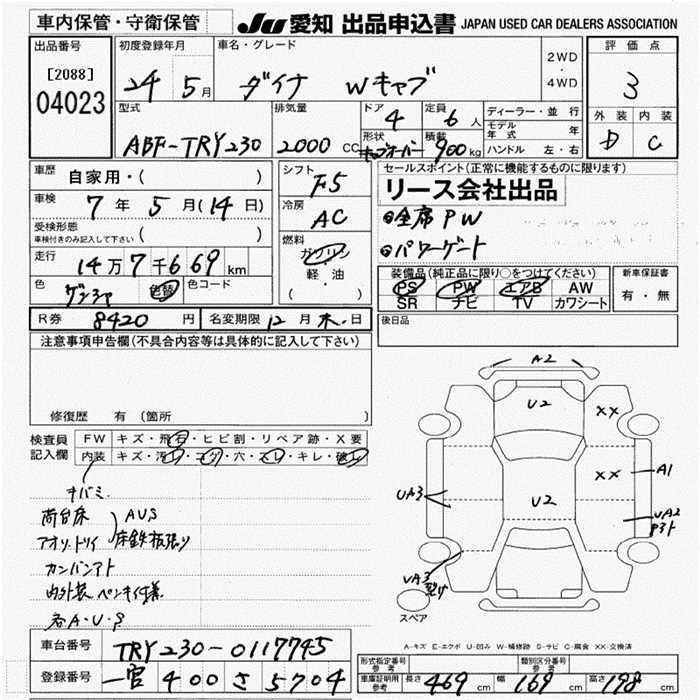 車内保管・守衛保管 JU 愛知 出品申込書 JAPAN USED CAR DEALERS ASSOCIATION
出品番号 [2088] 04023
初度登録年月 24 5月
車名・グレード ダイナ Wキャブ
2WD・4WD
評価点 3
外装 D 内装 C
型式 ABF-TRY230
排気量 2000 CC
ドア 4
形状
定員 6人
積載 900 kg
ディーラー・並行
モデル年式 年
ハンドル 左・右
車歴 自家用・( )
車検 7年5月(14日)
受検形態 車検付きのみ記入して下さい ( )
走行 14万7千669 km
色 ゲンシャ 色替 色コード
シフト F5
冷房 AC
燃料 ガソリン 軽・油 ( )
セールスポイント(正常に機能するものに限ります)
リース会社出品
全席PW
パワーゲート
装備品(純正品に限り○をつけてください)
PS PW エアB AW
SR ナビ TV カワシート
新車保証書 有・無
R券 8420円 名変期限 12月末日
後日品
注意事項申告欄(不具合内容等は具体的に記入して下さい)
修復歴 有(箇所 )
検査員記入欄
FW キズ・飛石・ヒビ割・リペア跡・X要
内装 キズ・汚レ・コゲ・穴・スレ・キレ・破レ
キバミ
荷台床 AUS
アオリ・トリイ 床鉄板張り
カンバンアト
内外装ペンキ仕様
各A・U・S
A2
U2
XX
XX
A1
UA3
U2
UA2
UA3
スペア
A-キズ E-エクボ U-凹み W-補修跡 S-サビ C-腐食 XX-交換済
車台番号 TRY230-0117745
登録番号 一宮 400 さ 5704
型式指定番号 参考 類別区分番号 参考
車庫証明用 参考 長さ 469 cm 幅 169 cm 高さ 198 cm